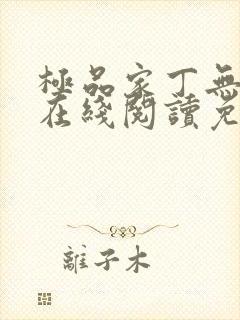 極品家丁無
在綫閱讀免
離子木